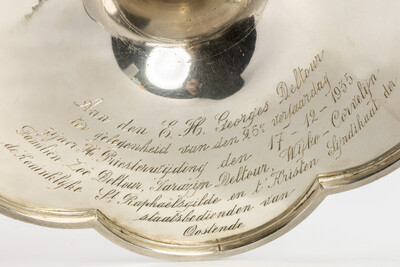 Aan den E. H. Georges Deltour
ter gelegenheid van den 25e verjaardag
zijner H. Priesterwijding den 17-12-1935
Familien Zoë Deltour, Sarazijn Deltour, Wybo-Cornelijn
de Koninklijke St. Raphaëlsgilde en t' Kristen Syndikaat der
staatsbedienden van
Oostende